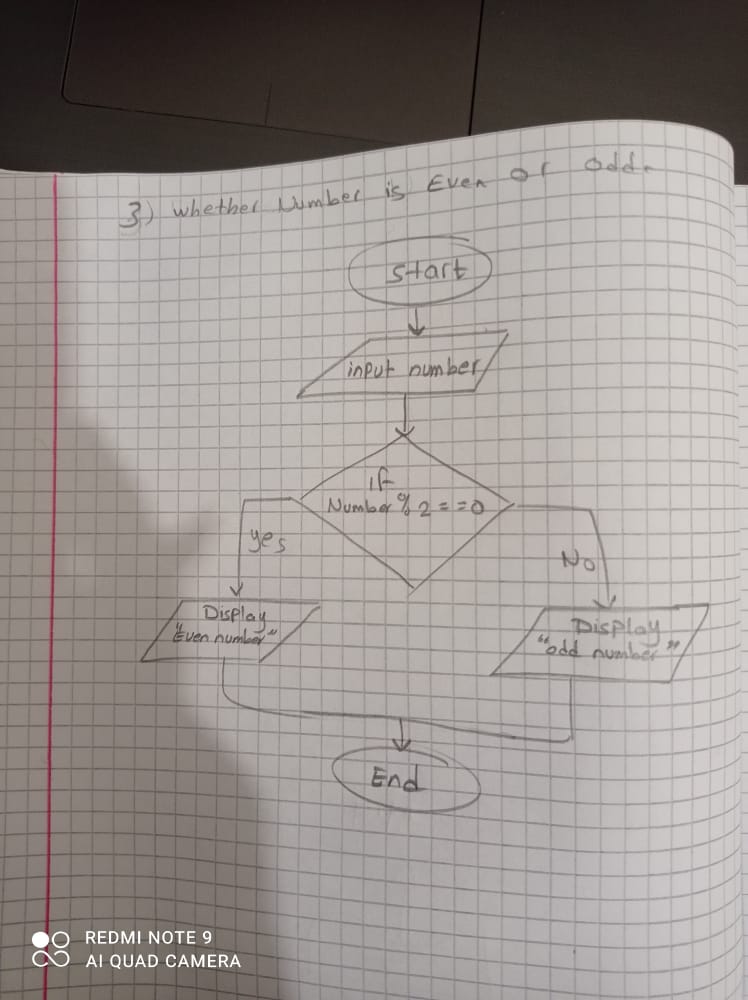 3) Whether Number is Even or odd.
Start
input number
if
Number % 2 = = 0
yes
No
Display
"Even number"
Display
"odd number"
End
REDMI NOTE 9
AI QUAD CAMERA